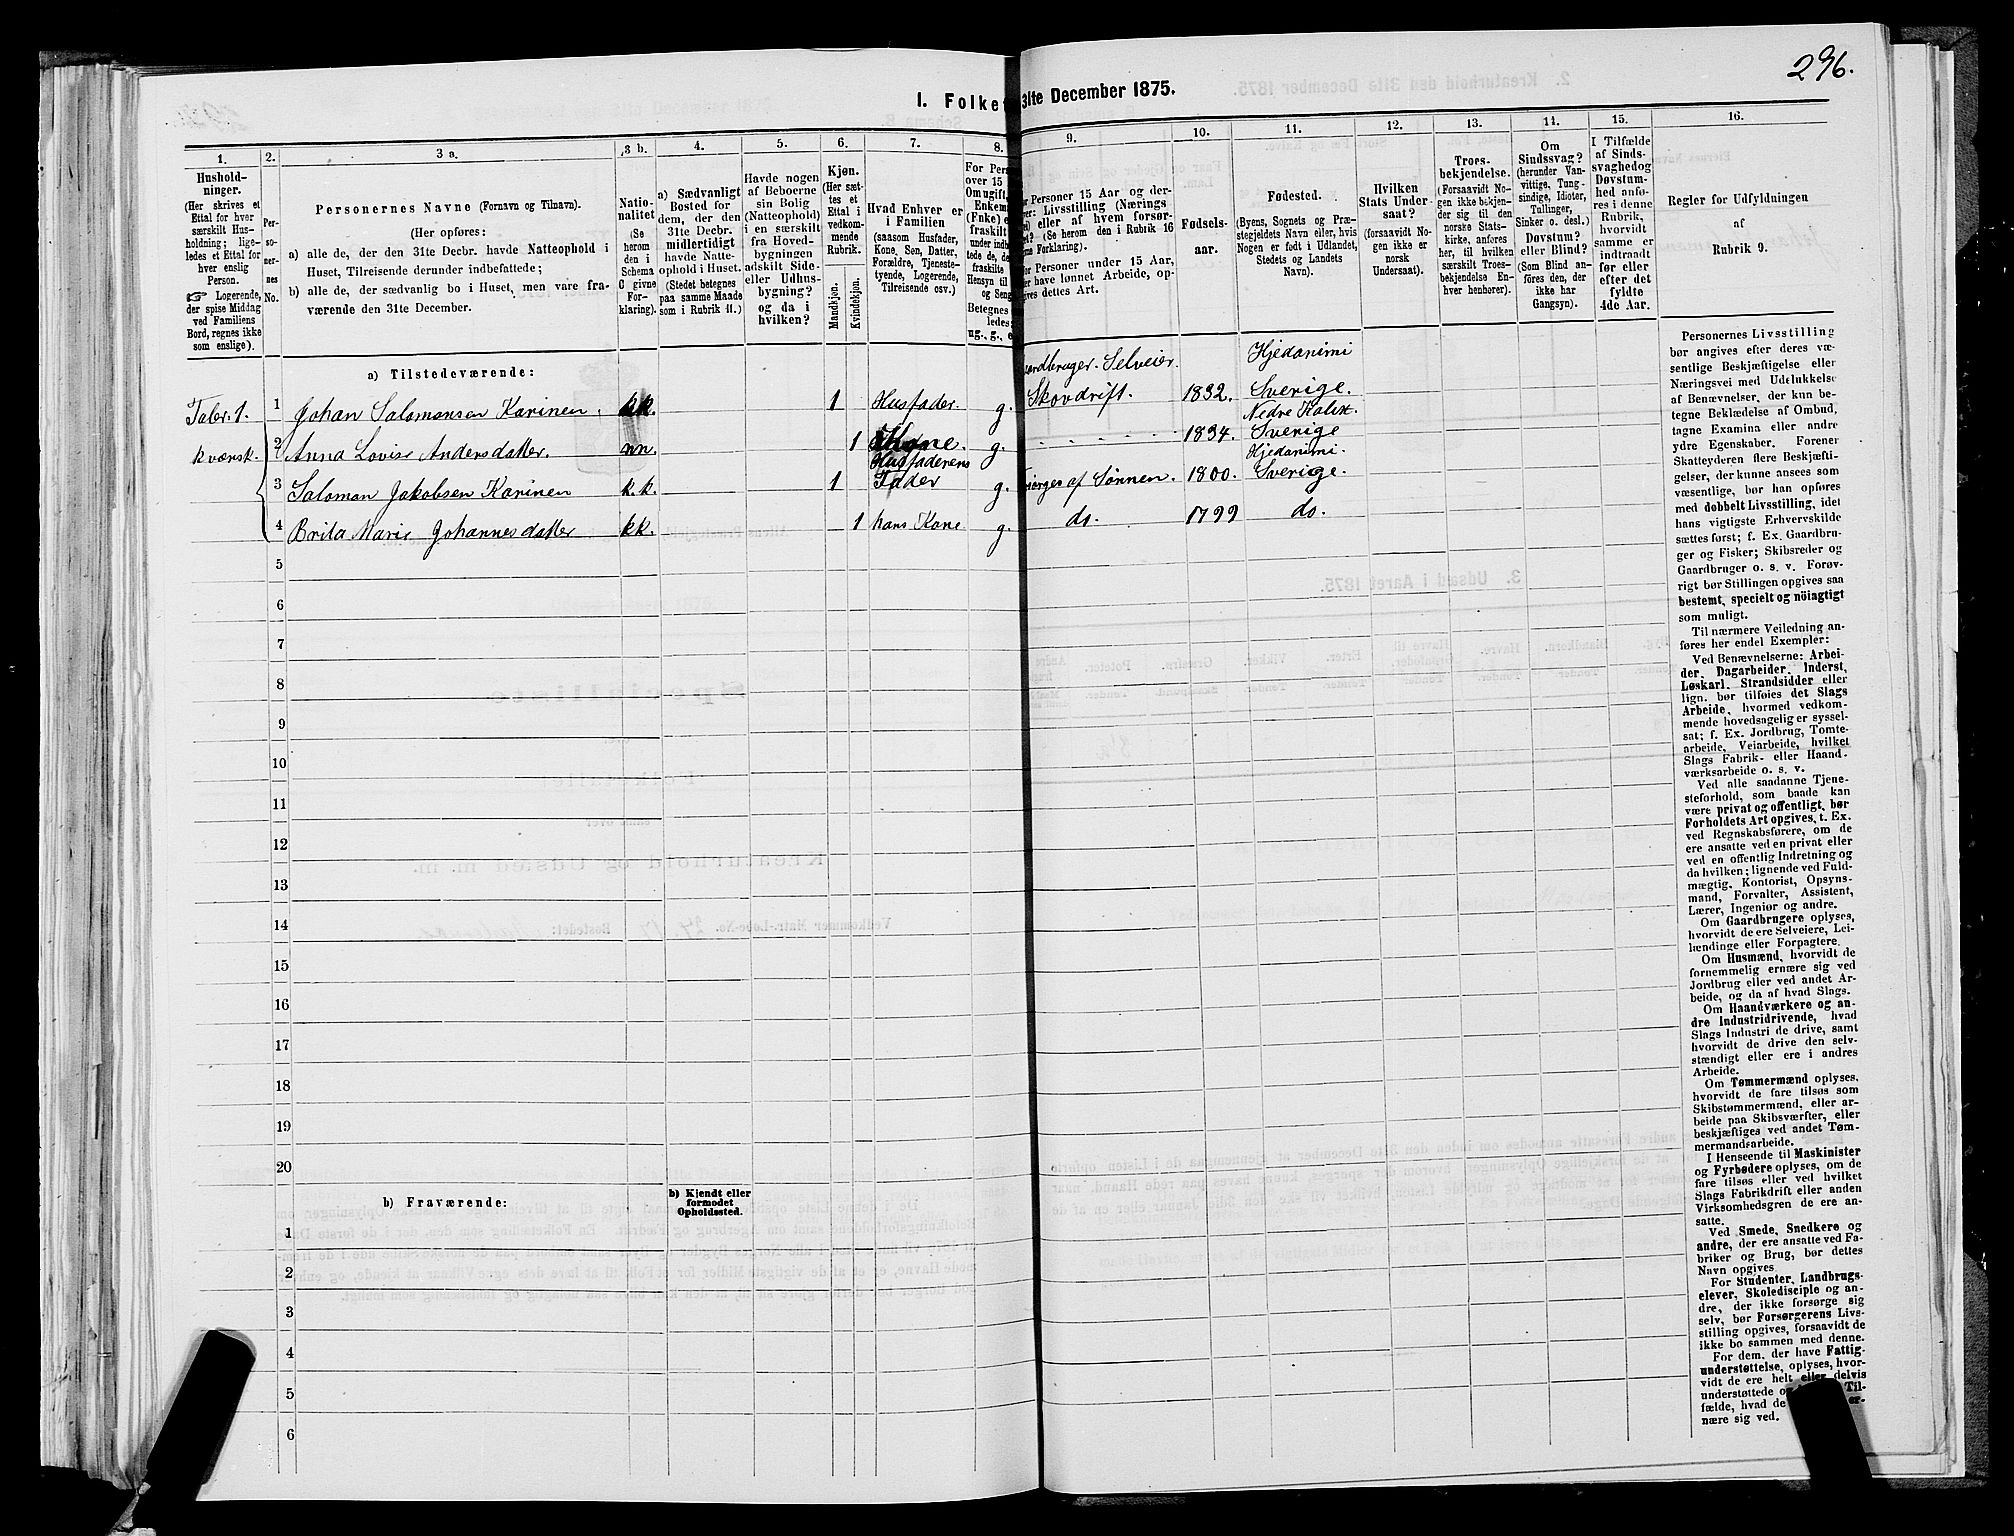 296.
I. Folket
31te December 1875.
1.
2.
3 a.
3 b.
4.
5.
6.
7.
8.
9.
10.
11.
12.
13.
14.
15.
16.
Hushold-
ninger.
(Her skrives et
Ettal for hver
særskilt Hus-
holdning; lige-
ledes et Ettal for
hver enslig
Person.
☞ Logerende,
der spise Middag
ved Familiens
Bord, regnes ikke
som enslige).
Per-
so-
ner-
nes
No.
Personernes Navne (Fornavn og Tilnavn).
(Her opføres:
a) alle de, der den 31te Decbr. havde Natteophold i
Huset, Tilreisende derunder indbefattede;
b) alle de, der sædvanlig bo i Huset, men vare fra-
værende den 31te December.
Natio-
nalitet
(Se
herom
den i
Schema
C givne
For-
klaring).
a) Sædvanligt
Bosted for
dem, der den
31te Decbr.
midlertidigt
havde Natte-
ophold i Huset.
(Stedet betegnes
paa samme Maade
som i Rubrik 11.)
Havde nogen
af Beboerne
sin Bolig
(Natteophold)
i en særskilt
fra Hoved-
bygningen
adskilt Side-
eller Udhus-
bygning?
og da i
hvilken?
Kjøn.
(Her sæt-
tes et
Ettal i
vedkom-
mende
Rubrik.
Mandkjøn.
Kvindekjøn.
Hvad Enhver er
i Familien
(saasom Husfader,
Kone, Søn, Datter,
Forældre, Tjeneste-
tyende, Logerende,
Tilreisende osv.)
For Pers
over 15
Om ugift,
Enkem
(Fnke) e
fraskilt
under indb
tede de, de
fraskilte
Hensyn til
og Seng
Betegnes
ledes:
ug., g., e
or Personer 15 Aar og der-
ver: Livsstilling (Nærings
vei) eller af hvem forsør-
get? (Se herom den i Rubrik 16
ne Forklaring).
or Personer under 15 Aar,
er have lønnet Arbeide, op-
gives dettes Art.
Fødsels-
aar.
Fødested.
(Byens, Sognets og Præ-
stegjeldets Navn eller, hvis
Nogen er født i Udlandet,
Stedets og Landets
Navn).
Hvilken
Stats Under-
saat?
(forsaavidt No-
gen ikke er
norsk
Undersaat).
Troes-
bekjendelse.
(Forsaavidt No-
gen ikke bekjen-
der sig til den
norske Stats-
kirke, anføres
her, til hvilken
særskilt Troes-
bekjendelse En-
hver henhører).
Om
Sindssvag?
(herunder Van-
vittige, Tung-
sindige, Idioter,
Tullinger,
Sinker o. desl.)
Døvstum?
eller Blind?
(Som Blind an-
føres den, der
ikke har
Gangsyn).
I Tilfælde
af Sinds-
svaghed og
Døvstum-
hed anfø-
res i denne
Rubrik,
hvorvidt
samme er
indtraadt
før eller
efter det
fyldte
4de Aar.
Regler for Udfyldningen
af
Rubrik 9.
a) Tilstedeværende:
Hjedanimi
Jordbruger-Selveier.
1 Johan Salomonsen Karinen. kk. 1 Husfader. g. Skovdrift. 1832. Sverige.
Nedre Kalix.
kværsk. 2 Anna Lovise Andersdatter. nn. 1 Kone. g. 1834. Sverige
Husfaderens Hjedanimi.
3 Saloman Jakobsen Karinen k.k. 1 Fader g. af Sønnen. 1800. Sverige.
4 Brita Marie Johannesdatter kk. 1 hans Kone g. do. 1799 do.
5
6
7
8
9
10
11
12
13
14
15
16
17
18
19
20
b) Fraværende:
b) Kjendt eller
formodet
Opholdssted.
1
2
3
4
5
6
Personernes Livsstilling
bør angives efter deres væ-
sentlige Beskjæftigelse eller
Næringsvei med Udelukkelse
af Benævnelser, der kun be-
tegne Beklædelse af Ombud,
tagne Examina eller andre
ydre Egenskaber. Forener
Skatteyderen flere Beskjæfti-
gelser, der kunne ansees som
væsentlige, bør han opføres
med dobbelt Livsstilling, idet
hans vigtigste Erhvervskilde
sættes først; f. Ex. Gaardbru-
ger og Fisker; Skibsreder og
Gaardbruger o. s. v. Forøv-
rigt bør Stillingen opgives saa
bestemt, specielt og nöiagtigt
som muligt.
Til nærmere Veiledning an-
føres her endel Exempler:
Ved Benævnelserne: Arbei-
der, Dagarbeider, Inderst,
Løskarl, Strandsidder eller
lign. bør tilføies det Slags
Arbeide, hvormed vedkom-
mende hovedsagelig er syssel-
sat; f. Ex. Jordbrug, Tomte-
arbeide, Veiarbeide, hvilket
Slags Fabrik- eller Haand-
værksarbeide o. s. v.
Ved alle saadanne Tjene-
steforhold, som baade kan
være privat og offentligt, bør
Forholdets Art opgives, t. Ex.
ved Regnskabsførere, om de
ere ansatte ved en privat eller
ved en offentlig Indretning og
da hvilken; lignende ved Fuld-
mægtig, Kontorist, Opsyns-
mand, Forvalter, Assistent,
Lærer, Ingeniør og andre.
Om Gaardbrugere oplyses,
hvorvidt de ere Selveiere, Lei-
lændinge eller Forpagtere.
Om Husmænd, hvorvidt de
fornemmelig ernære sig ved
Jordbrug eller ved andet Ar-
beide, og da af hvad Slags.
Om Haandværkere og an-
dre Industridrivende, hvad
Slags Industri de drive, samt
hvorvidt de drive den selv-
stændigt eller ere i andres
Arbeide.
Om Tømmermænd oplyses,
hvorvidt de fare tilsøs som
Skibstømmermænd, eller ar-
beide paa Skibsværfter, eller
beskjæftiges ved andet Tøm-
mermandsarbeide.
I Henseende til Maskinister
og Fyrbødere oplyses, om de
fare tilsøs eller ved hvilket
Slags Fabrikdrift eller anden
Virksomhedsgren de ere an-
satte.
Ved Smede, Snedkere og
andre, der ere ansatte ved Fa-
briker og Brug, bør dettes
Navn opgives.
For Studenter, Landbrugs-
elever, Skoledisciple og an-
dre, der ikke forsørge sig
selv, bør Forsørgerens Livs-
stilling opgives, forsaavidt de
ikke bo sammen med denne.
For dem, der have Fattig-
understøttelse, oplyses, hvor-
vidt de ere helt eller delvis
understøttede o Til-
fælde, hvad de er-
nære sig ved.